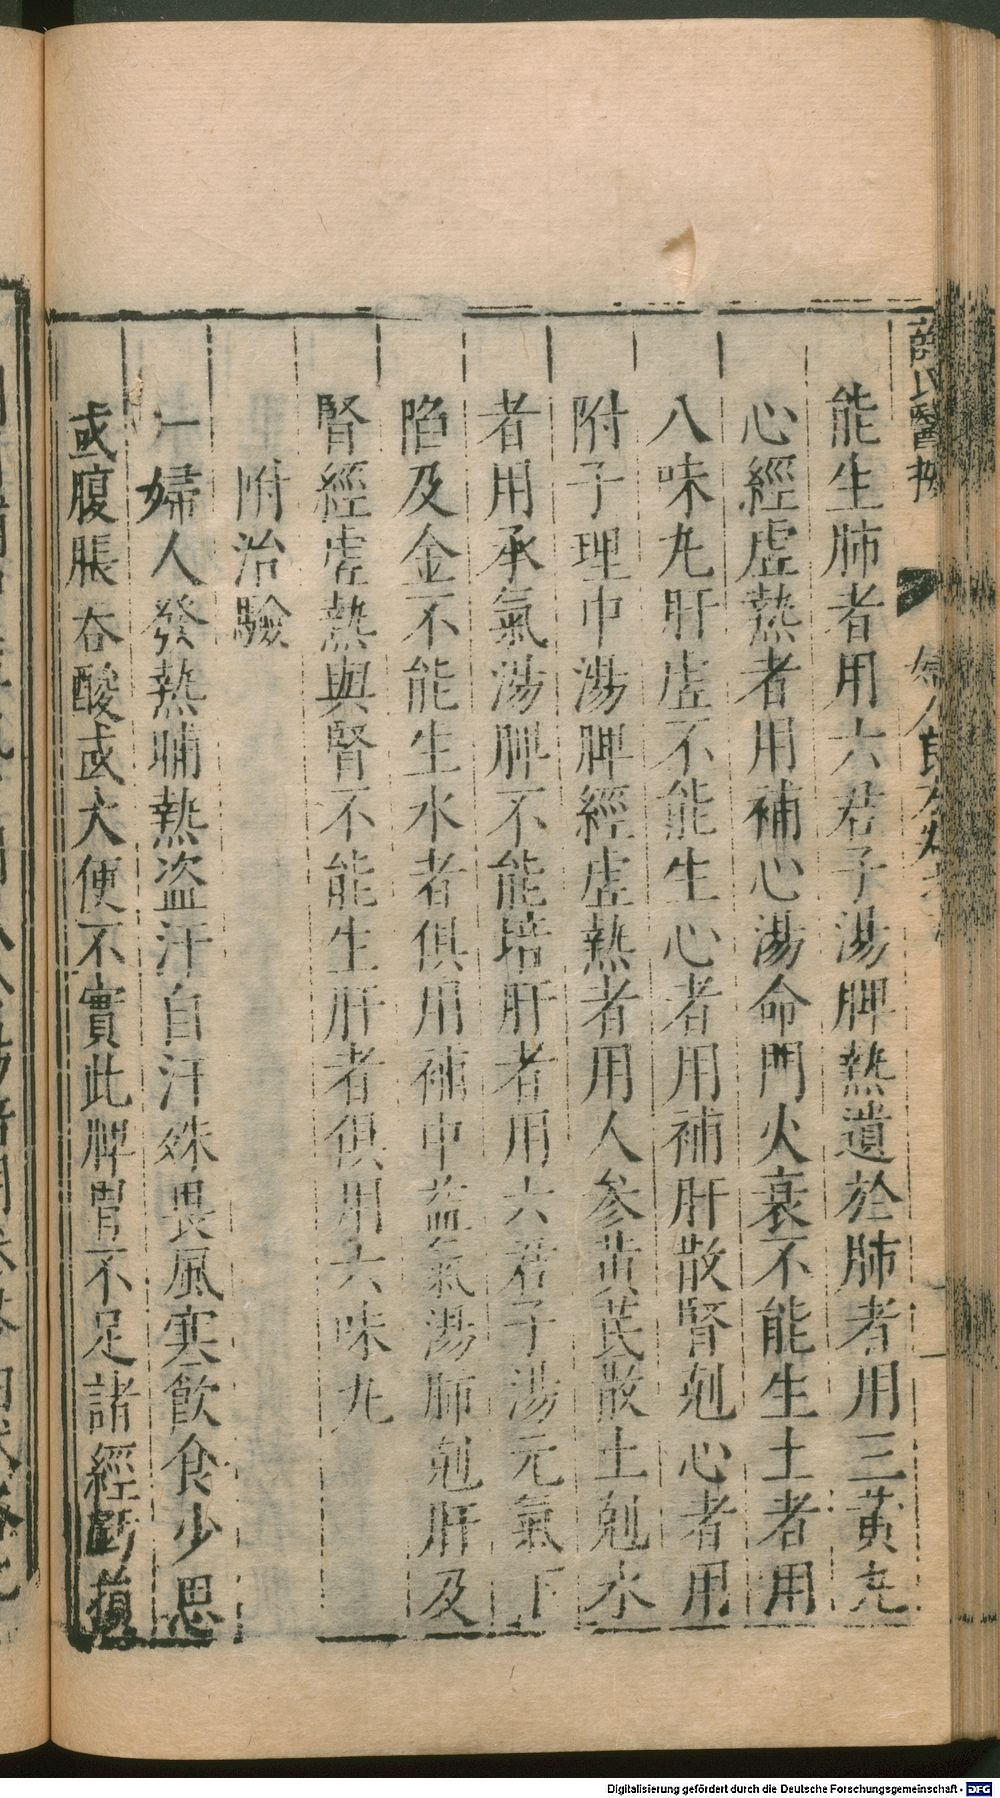 薛氏醫按 婦人良方
能生肺者用六君子湯脾熱遺於肺者用三黃丸
心經虛熱者用補心湯命門火衰不能生土者用
八味丸肝虛不能生心者用補肝散腎剋心者用
附子理中湯脾經虛熱者用人參黃芪散土剋水
者用承氣湯脾不能培肝者用六君子湯元氣下
陷及金不能生水者俱用補中益氣湯肺剋肝及
腎經虛熱與腎不能生肝者俱用六味丸
附治驗
一婦人發熱晡熱盜汗自汗殊畏風寒飲食少思
或腹脹吞酸或大便不實此脾胃不足諸經虧損
Digitalisierung gefördert durch die Deutsche Forschungsgemeinschaft - DFG